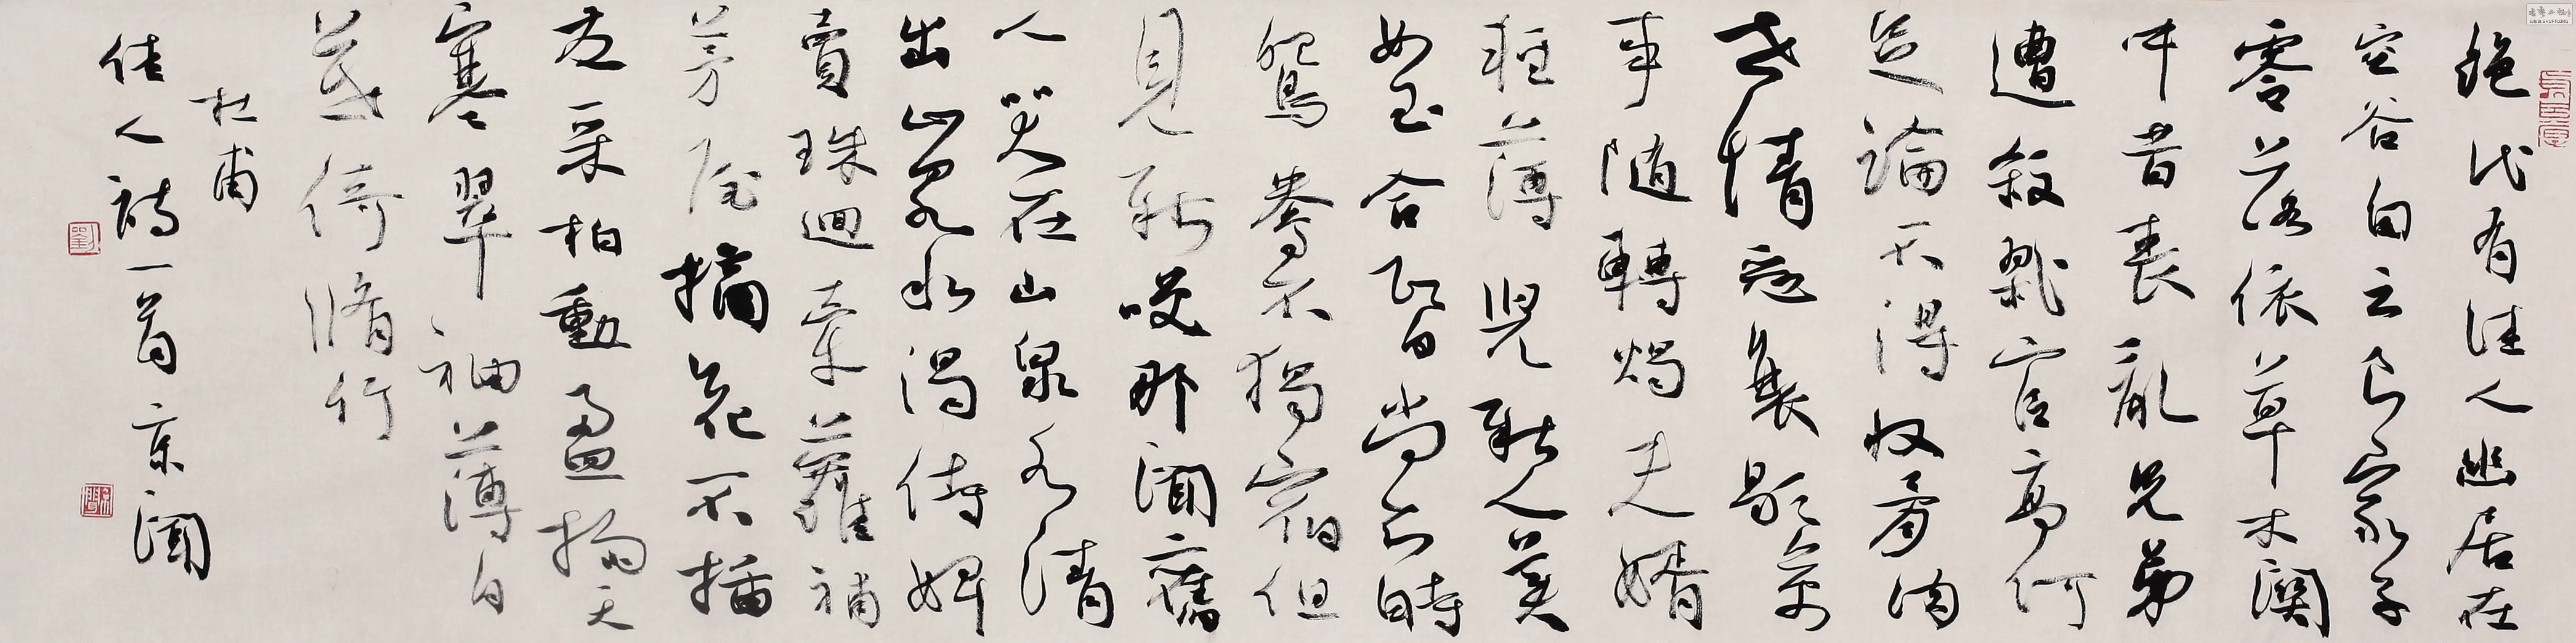 絕代有佳人幽居在
空谷自云良家子
零落依草木關
中昔喪亂兄弟
遭殺戮官高何
足論不得收骨肉
世情惡衰歇萬
事隨轉燭夫婿
輕薄兒新人美
如玉合昏尚知時
鴛鴦不獨宿但
見新咲那聞舊
人哭在山泉水清
出山泉水濁侍婢
賣珠迴牽蘿補
茅屋摘花不插
髮采柏動盈掬天
寒翠袖薄日
暮倚脩竹
杜甫
佳人詩一首京聞
劉
京聞